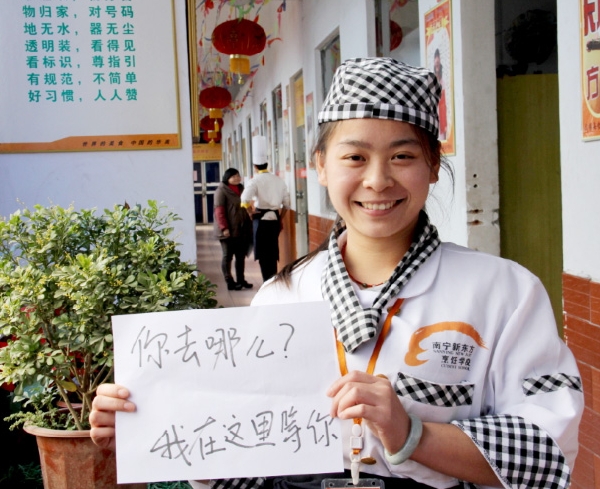 物归家，对号码
地无水，器无尘
透明装，看得见
看标识，尊指引
有规范，不简单
好习惯，人人赞
你去哪么？
我在这里等你
南宁新东方
烹饪学院
方